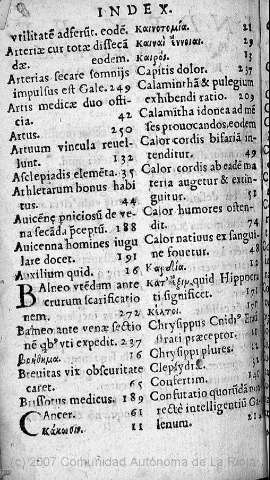 INDEX.
vtilitatẽ adferũt. eodẽ.
Arteriæ cur totæ dissecã
dæ. eodem
Arterias secare somnijs
impulsus est Gale. 249
Artis medicæ duo osti-
cia. 42
Artus. 250
Artuum vincula reuel-
lunt. 132
Asclepiadis elemẽta. 35
Athletarum bonus habi
tus. 44
Auicẽnę pniciosũ de ve-
na secãda pceptũ. 188
Auicenna homines iugu
lare docet. 191
Auxilium quid. 16
BAlneo vtẽdum ante
crurum scarificatio
nem. 272
Balneo ante venæ sectio
nẽ qbꝰ vti expedit. 237
βοήθημα. 16
Breuitas vix obscuritate
caret. 65
Brissotus medicus. 189
CAncer. 61
Κάκωσιν. 11
Καινοτομία. 21
Καιναὶ ἔννοιαι. 29
Καιρός. 13
Capitis dolor. 237
Calaminthã & pulegium
exhibendi ratio. 209
Calamitha idonea ad mẽ
ses prouocandos. eodem
Calor cordis bifariã in-
tenditur. 49
Calor cordis ab eadẽ ma
teria augetur & extin-
guitur. 51
Calor humores osten-
dit. 74
Calor natiuus ex sangui-
ne fouetur. 48
Καρδία. 12
quid Hippocra
ti significet. 191
Chrysippus Cnidiꝰ Erasi
strati præceptor.
Chrysippi plures.
Clepsydræ.
Confertim.
Confutatio quorũdã non
rectè intelligentiũ Ga-
lenum. 211
(c) 2007 Comunidad Autónoma de La Rioja